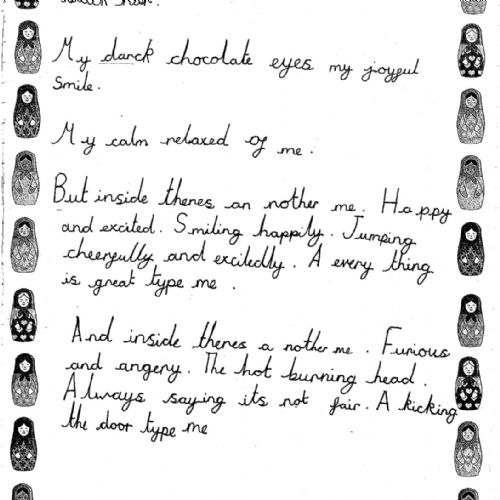 My darck chocolate eyes my joyful
smile.
My calm relaxed of me.
But inside theres an nother me. Happy
and excited. Smiling happily. Jumping
cheerfully and excitedly. A every thing
is great type me.
And inside theres a nother me. Furious
and angery. The hot burning head.
Always saying its not fair. A kicking
the door type me